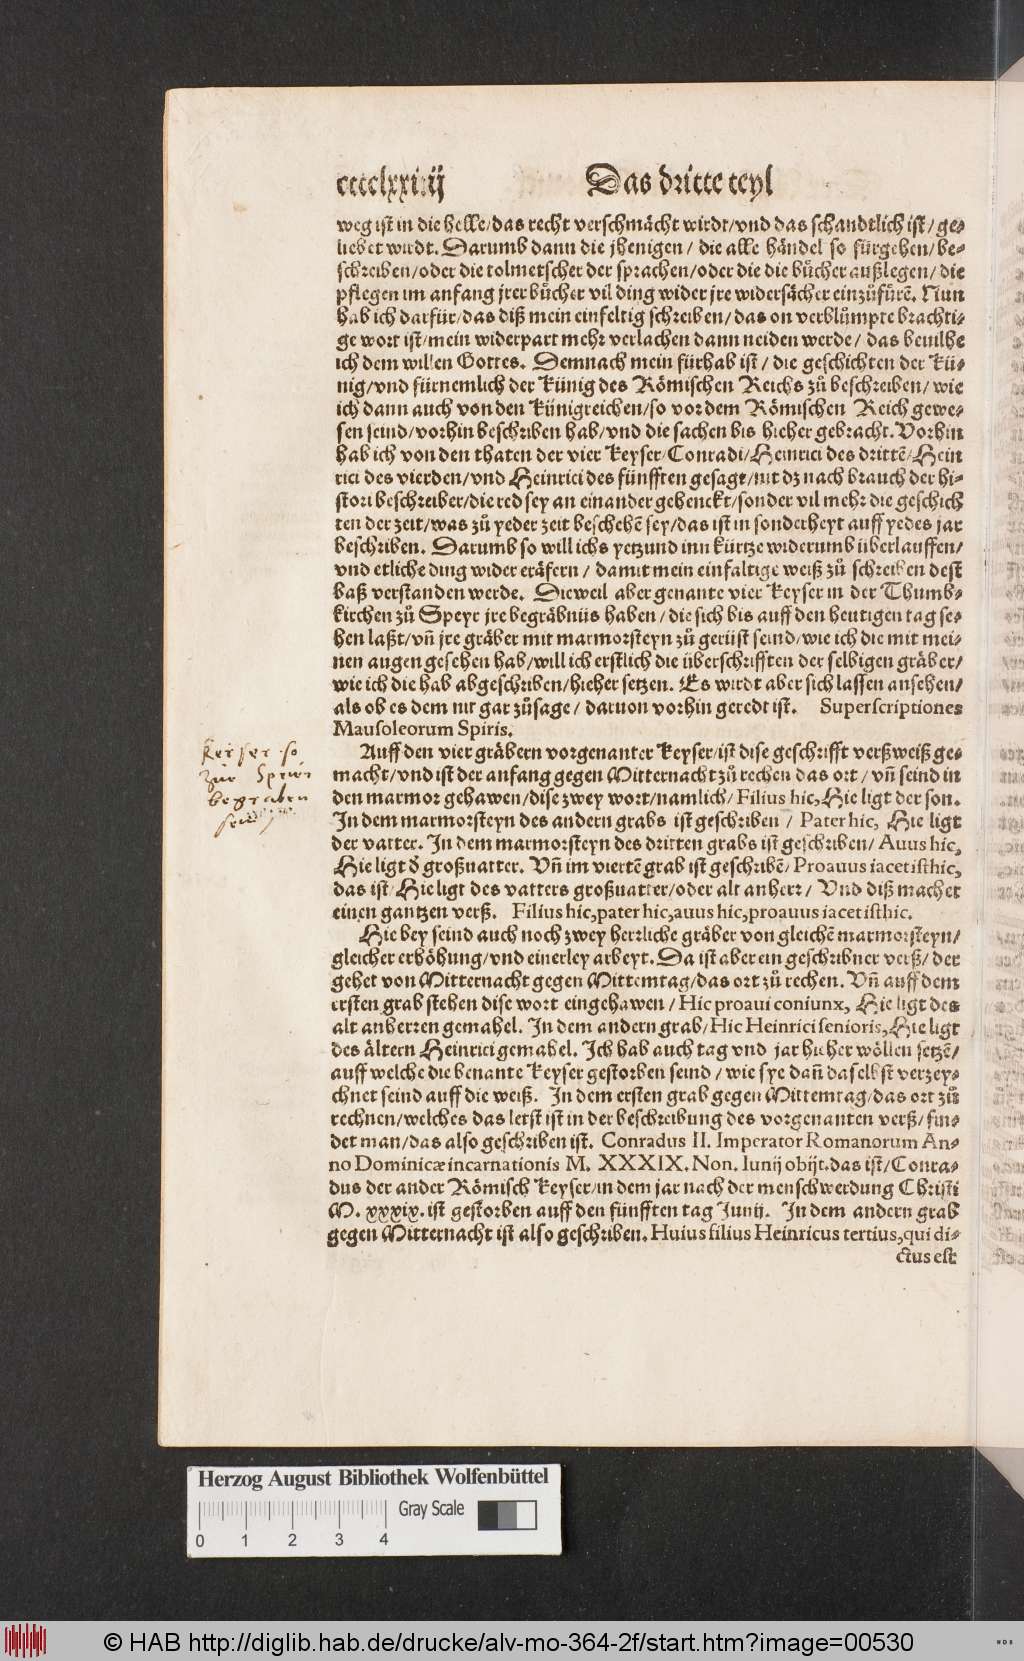 cccclxxiiij Das dritte teyl
weg ist in die helle/das recht verschmächt wirdt/vnd das schandtlich ist/ ge-
liebet wirdt. Darumb dann die jhenigen / die alle händel so fürgehen/be-
schreiben/oder die tolmetscher der sprachen/oder die die bůcher außlegen/ die
pflegen im anfang jrer bůcher vil ding wider jre widersächer einzůfürẽ. Nun
hab ich darfür/das diß mein einfeltig schreiben/das on verblůmpte brachti-
ge wort ist/mein widerpart mehr verlachen dann neiden werde/ das beuilhe
ich dem willen Gottes. Demnach mein fürhab ist / die geschichten der Kü-
nig/vnd fürnemlich der Künig des Römischen Reichs zů beschreiben/ wie
ich dann auch von den Künigreichen/so vor dem Römischen Reich gewe-
sen seind/vorhin beschriben hab/vnd die sachen bis hieher gebracht. Vorhin
hab ich von den thaten der vier Keyser/Conradi/Heinrici des drittẽ/Hein
rici des vierden/vnd Heinrici des fünfften gesagt/nit dz nach brauch der hi-
stori beschreiber/die red sey an einander gehenckt/sonder vil mehr die geschich
ten der zeit/was zů yeder zeit beschehẽ sey/das ist in sonderheyt auff yedes jar
beschriben. Darumb so will ichs yetzund inn kürtze widerumb überlauffen/
vnd etliche ding wider eräfern / damit mein einfaltige weiß zů schreiben dest
baß verstanden werde. Dieweil aber genante vier Keyser in der Thumb-
kirchen zů Speyr jre begräbnüs haben / die sich bis auff den heutigen tag se-
hen laßt/vñ jre gräber mit marmorsteyn zů gerüst seind/wie ich die mit mei-
nen augen gesehen hab/will ich erstlich die überschrifften der selbigen gräber/
wie ich die hab abgeschriben/hieher setzen. Es wirdt aber sich lassen ansehen/
als ob es dem nit gar zůsage / daruon vorhin geredt ist. Superscriptiones
Mausoleorum Spiris.
Auff den vier gräbern vorgenanter Keyser/ist dise geschrifft verßweiß ge-
macht/vnd ist der anfang gegen Mitternacht zů rechen das ort / vñ seind in
den marmor gehawen/dise zwey wort/namlich/ Filius hic, Hie ligt der son.
In dem marmorsteyn des andern grabs ist geschriben / Pater hic, Hie ligt
der vatter. In dem marmorsteyn des dritten grabs ist geschriben/ Auus hic,
Hie ligt ď großuatter. Vñ im viertẽ grab ist geschribẽ/ Proauus iacet isthic,
das ist/Hie ligt des vatters großuatter/oder alt anherr/ Vnd diß machet
einen gantzen verß. Filius hic, pater hic, auus hic, proauus iacet isthic.
Hie bey seind auch noch zwey herrliche gräber von gleichẽ marmorsteyn/
gleicher erhöhung/vnd einerley arbeyt. Da ist aber ein geschribner verß/ der
gehet von Mitternacht gegen Mittemtag/das ort zů rechen. Vñ auff dem
ersten grab stehen dise wort eingehawen / Hic proaui coniunx, Hie ligt des
alt anherren gemahel. In dem andern grab/Hic Heinrici senioris, Hie ligt
des ältern Heinrici gemahel. Ich hab auch tag vnd jar hieher wöllen setzẽ/
auff welche die benante Keyser gestorben seind / wie sye dañ daselbst verzey-
chnet seind auff die weiß. In dem ersten grab gegen Mittemtag/das ort zů
rechnen/welches das letst ist in der beschreibung des vorgenanten verß/ fin-
det man/das also geschriben ist. Conradus II. Imperator Romanorum An-
no Dominicæ incarnationis M. XXXIX. Non. Iunij obijt. das ist/Conra-
dus der ander Römisch Keyser/in dem jar nach der menschwerdung Christi
M. xxxix. ist gestorben auff den fünfften tag Junij. In dem andern grab
gegen Mitternacht ist also geschriben. Huius filius Heinricus tertius, qui di-
ctus est
Keiser so
zur Speier
begraben
sein
Herzog August Bibliothek Wolfenbüttel
Gray Scale
0 1 2 3 4
© HAB http://diglib.hab.de/drucke/alv-mo-364-2f/start.htm?image=00530